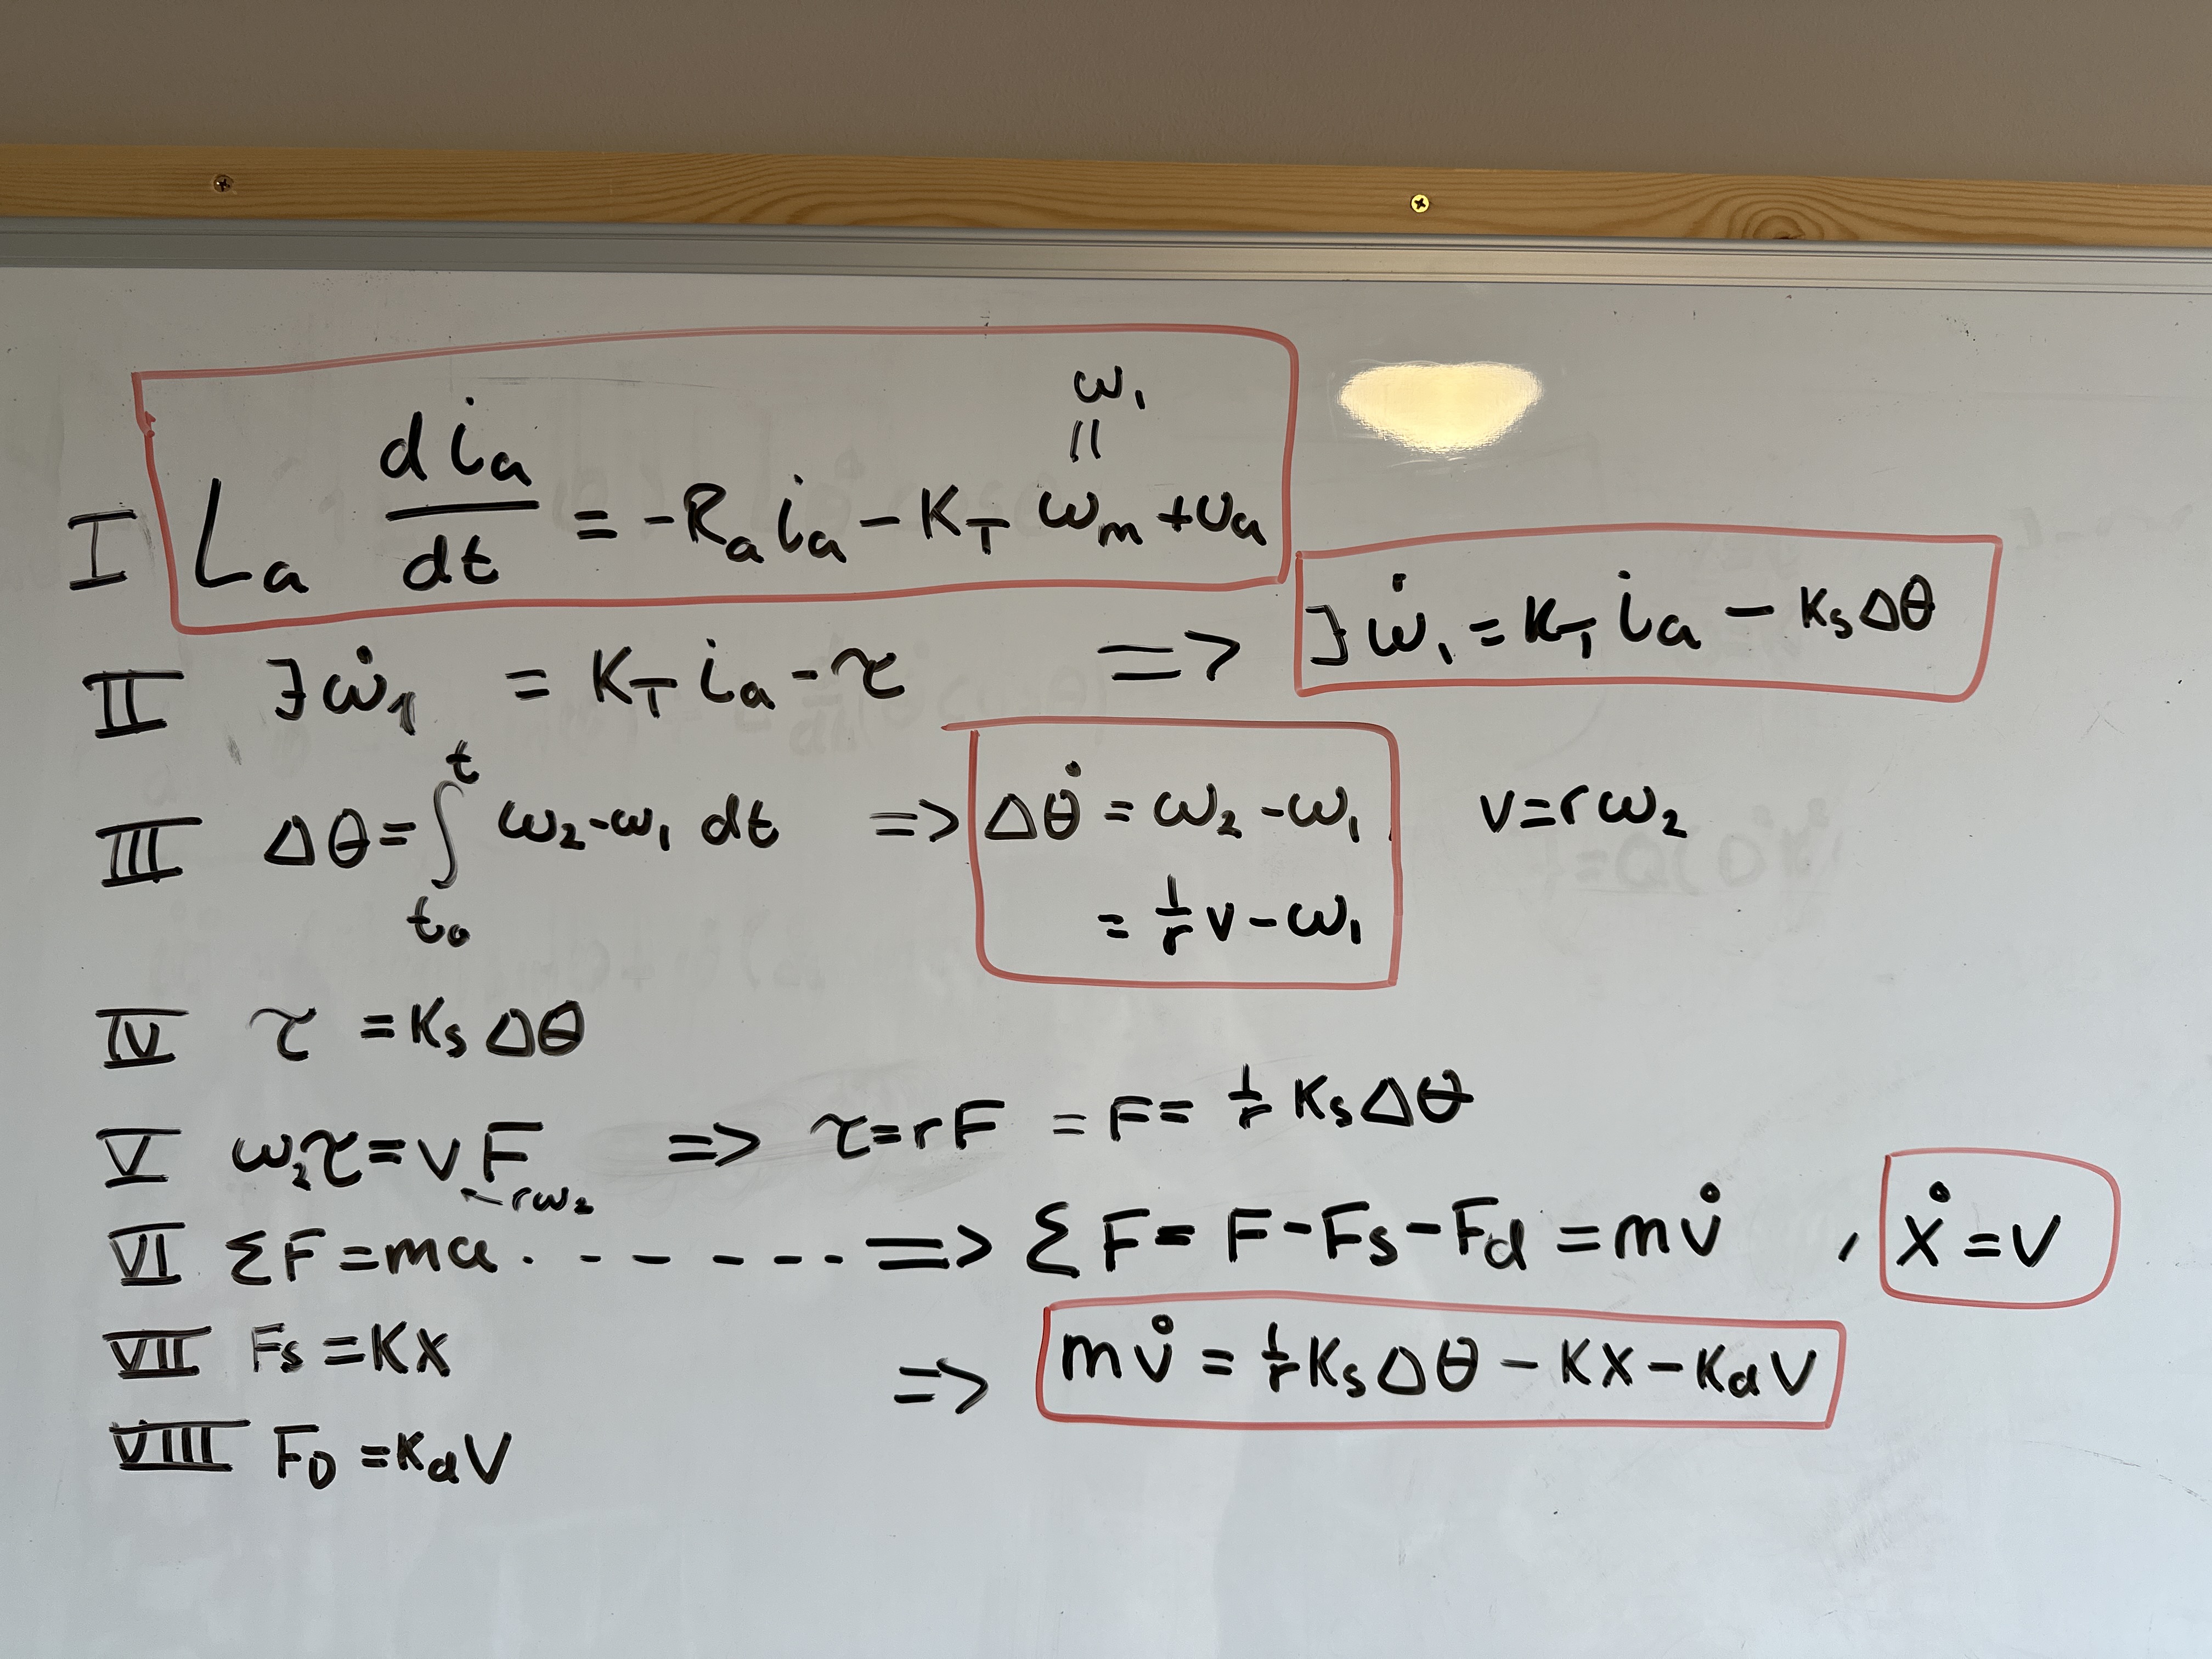 I L_a di_a/dt = -R_a i_a - K_T ω_m + u_a
ω_1
॥
II J ω̇_1 = K_T i_a - τ => J ω̇_1 = K_T i_a - K_s Δθ
III Δθ = ∫_{t_0}^{t} ω_2 - ω_1 dt => Δθ̇ = ω_2 - ω_1 v = r ω_2
= 1/r v - ω_1
IV τ = K_s Δθ
V ω_2 τ = v F => τ = r F = F = 1/r K_s Δθ
← r ω_2
VI Σ F = m a . - - - - - - => Σ F = F - F_s - F_d = m v̇ , ẋ = v
VII F_s = K x
=> m v̇ = 1/r K_s Δθ - K x - K_d v
VIII F_D = K_d v